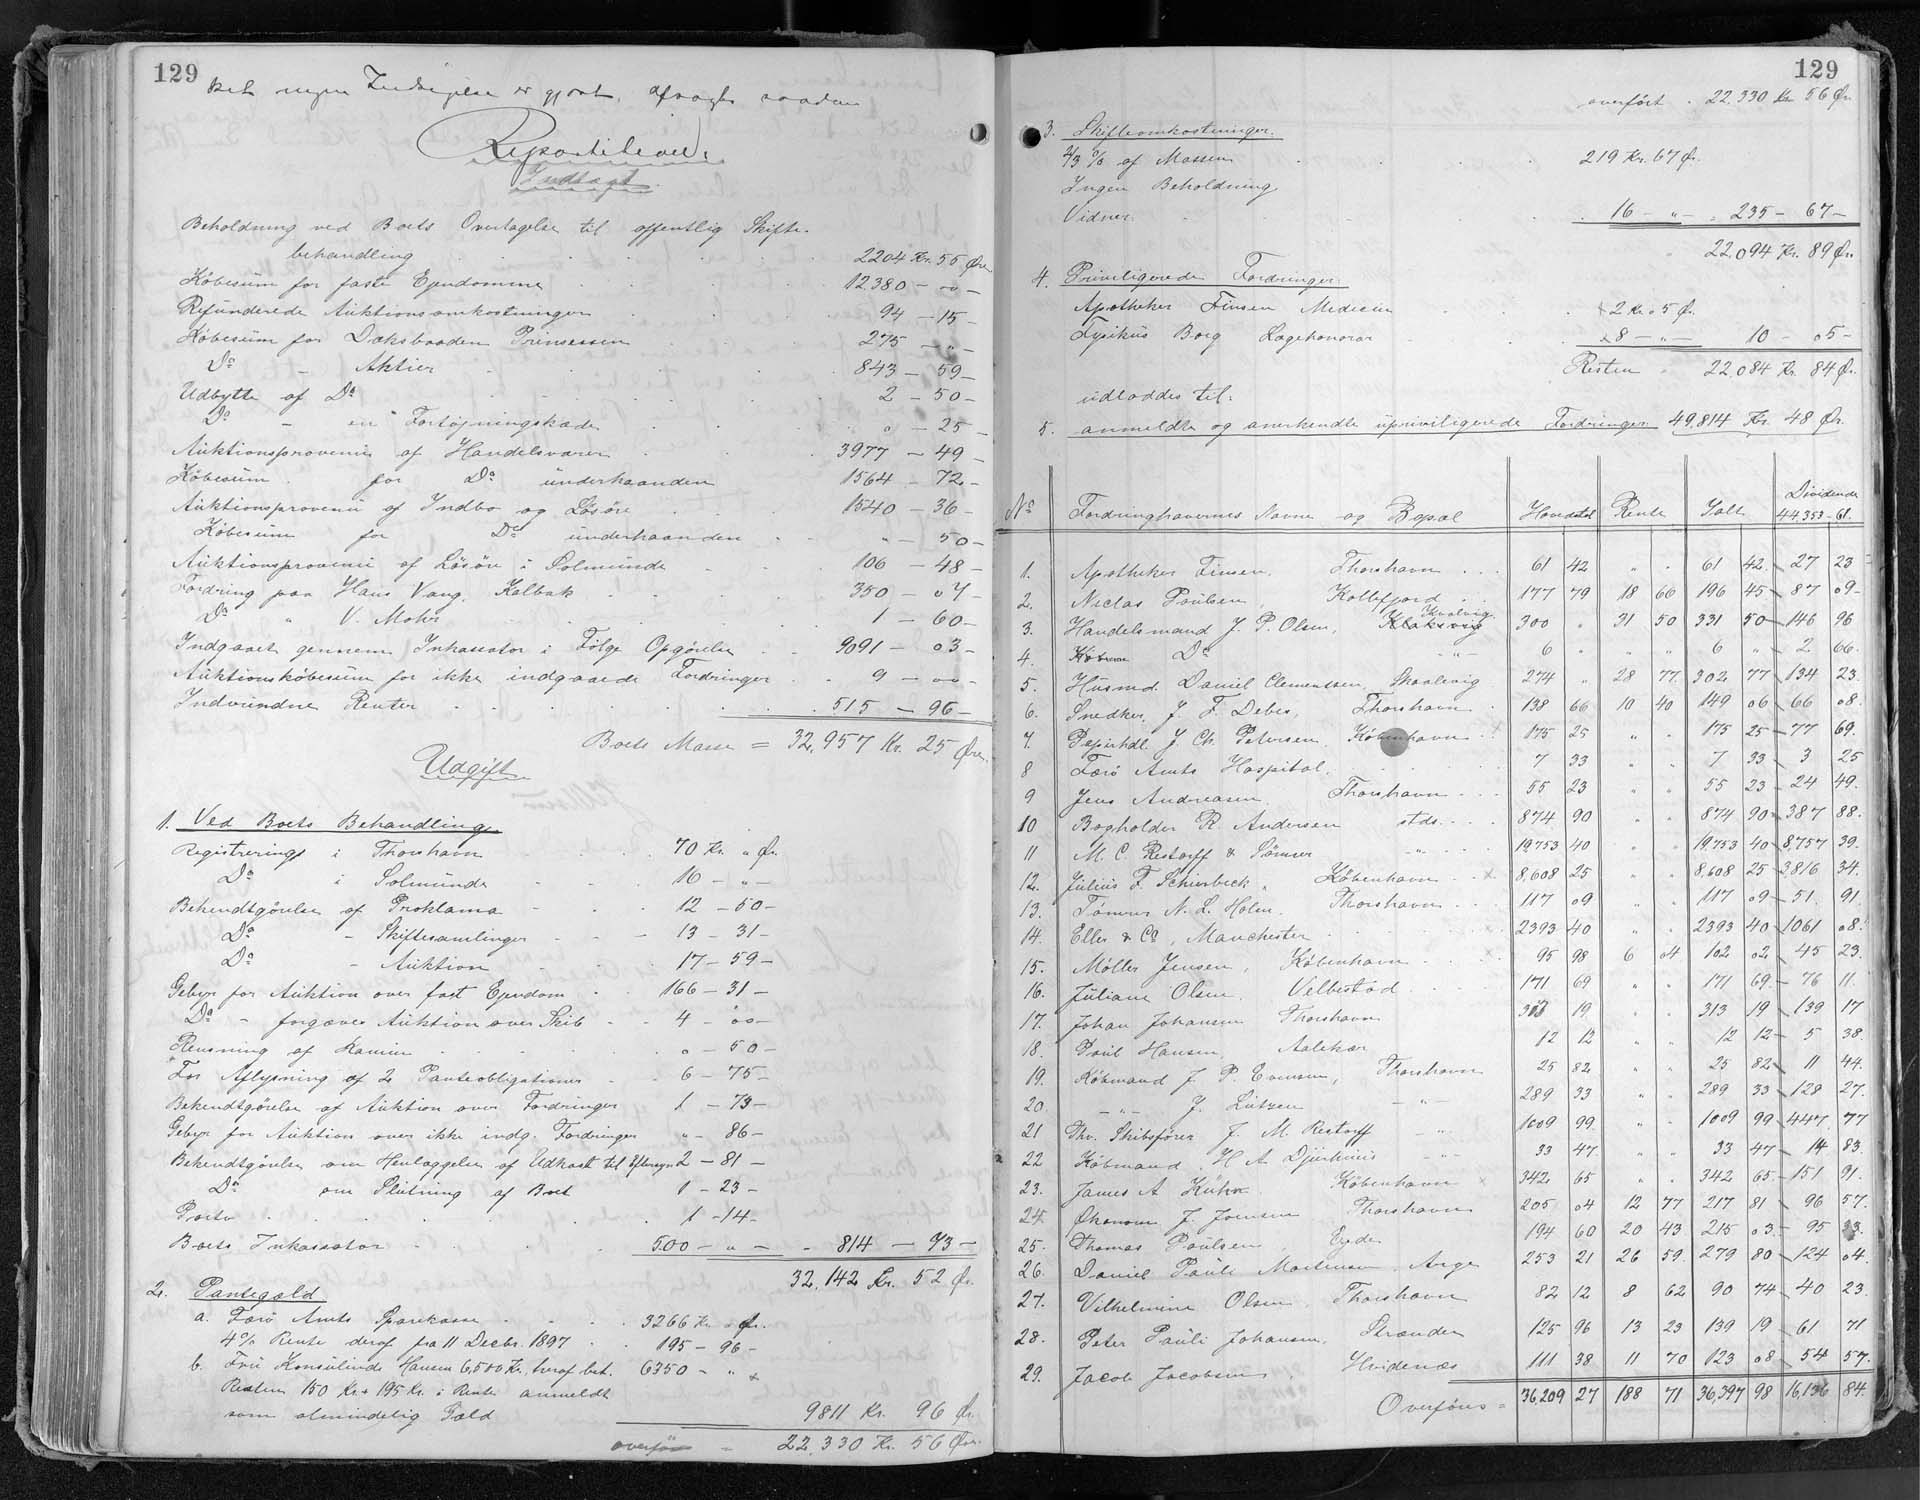 129
ingen Indsigelse er gjort, afsagdes saadan
Repartition.
Indtægt.
Beholdning ved Boets Overtagelse til offentlig Skifte-
behandling 2204 Kr. 55 Øre
Købesum for faste Ejendomme 12380 – oo –
Refunderede Auktionsomkostninger 94 – 15 –
Købesum for Dæksbaaden Prinsessen 275 – " –
Do – Aktier 843 – 59 –
Udbytte af Do 2 – 50 –
Do – en Fortøjningskæde " – 25 –
Auktionsprovenu af Handelsvarer 3977 – 49 –
Købesum for Do underhaanden 1564 – 72 –
Auktionsprovenu af Indbo og Løsøre 1540 – 36 –
Købesum for Do underhaanden " – 50 –
Auktionsprovenu af Løsøre i Solmunde 106 – 48 –
Fordring paa Hans Vang, Kalbak 350 – 07 –
Do " V. Mohr 1 – 60 –
Indgaaet gennem Inkassator i Følge Opgørelse 9091 – 03 –
Auktionskøbesum for ikke indgaaede Fordringer 9 – oo –
Indvundne Renter 515 – 96 –
Boets Masse = 32,957 Kr. 25 Øre
Udgift
1. Ved Boets Behandling
Registrering i Thorshavn 70 Kr. " Ør.
Do i Solmunde 16 – " –
Bekendtgørelse af Proklama 12 – 50 –
Do – Skiftesamlinger 13 – 31 –
Do – Auktion 17 – 59 –
Gebyr for Auktion over fast Ejendom 166 – 31 –
Do – forgæves Auktion over Skib 4 – oo –
Rensning af Kamin " – 50 –
For Aflysning af 2 Panteobligationer 6 – 75 –
Bekendtgørelse af Auktion over Fordringer 1 – 73 –
Gebyr for Auktion over ikke indg. Fordringer " – 86 –
Bekendtgørelse om Henlæggelse af Udkast til Eftersyn 2 – 81 –
Do om Slutning af Boet 1 – 23 –
Porto 1 – 14 –
Boets Inkassator 500 – " – 814 – 73 –
32,142 Kr. 52 Ør.
2. Pantegæld
a. Færø Amts Sparekasse 3266 Kr " Ør.
4% Rente deraf fra 11 Decbr. 1897 195 – 96 –
b. Fru Konsulinde Hansen 6,500 Kr. heraf bet. 6350 – " –
Resten 150 Kr + 195 Kr. i Rente anmeldt
som almindelig Gæld 9811 Kr. 96 Ør.
overføres 22,330 Kr. 56 Øre.
129
overført 22,330 Kr 56 Ør
3. Skifteomkostninger.
2/3 % af Massen 219 Kr. 67 Ør.
Ingen Beholdning
Vidner 16 – " – = 235 – 67 –
22,094 Kr. 89 Ør.
4. Priviligerede Fordringer
Apotheker Finsen Medicin 2 Kr. 05 Ør.
Fysikus Borg Lægehonorar 8 – " – 10 – 05 –
Resten 22,084 Kr. 84 Ør.
udloddes til:
5. anmeldte og anerkendte upriviligerede Fordringer 49,814 Kr. 48 Ør.
No Fordringhavernes Navne og Bopæl Hovedstol Rente Ialt Dividende 44,353 – 61.
1. Apotheker Finsen, Thorshavn 61 42 " " 61 42 27 23
2. Niclas Poulsen, Kollefjord 177 79 18 66 196 45 87 09
3. Handelsmand J. P. Olsen, Klaksvig Kvalvig 300 " 31 50 331 50 146 96
4. Do – " – 6 " " " 6 " 2 66.
5. Husmd. Daniel Clementsen, Skaalevig 274 " 28 77 302 77 134 23.
6. Snedker J. F. Debes, Thorshavn 138 66 10 40 149 06 66 08.
7. Papirhdl. J. Ch. Petersen, København 175 25 " " 175 25 77 69.
8 Færø Amts Hospital 7 33 " " 7 33 3 25
9 Jens Andreasen Thorshavn 55 23 " " 55 23 24 49.
10 Bogholder R. Andersen stds. 874 90 " " 874 90 387 88.
11 M. C. Restorff & Sønner – " – 19753 40 " " 19,753 40 8,757 39.
12. Julius F. Schierbeck, København 8,608 25 " " 8,608 25 3816 34.
13. Tømrer N. L. Holm. Thorshavn 117 09 " " 117 09 51 91
14. Elles & Co, Manchester 2393 40 " " 2393 40 1061 08.
15. Møller Jensen, København 95 98 6 04 102 02 45 23.
16. Juliane Olsen, Velbestad 171 69 " " 171 69 76 11.
17. Johan Johansen Thorshavn 313 19 " " 313 19 139 17
18. Poul Hansen, 12 12 " " 12 12 5 38.
19. Købmand J. P. Thorshavn 25 82 " " 25 82 11 44.
20. – " – J. Lützen – " – 289 33 " " 289 33 128 27.
21 Thv. Skibsfører J. M. Restorff – " – 1009 99 " " 1009 99 447 77
22 Købmand H A Djurhuus – " – 33 47 " " 33 47 14 83.
23. James A Kuhn København 342 65 " " 342 65 151 91.
24. Økonom J. Joensen Thorshavn 205 04 12 77 217 81 96 57.
25. Thomas Poulsen, Ejde 194 60 20 43 215 03 95 33.
26. Daniel Pauli Mortensen, Arge 253 21 26 59 279 80 124 04.
27. Vilhelmine Olsen Thorshavn 82 12 8 62 90 74 40 23.
28. Peter Pauli Johansen, Strænder 125 96 13 23 139 19 61 71
29. Jacob Jacobsen, Hvidenæs 111 38 11 70 123 08 54 57.
Overføres = 36,209 27 188 71 36,397 98 16,136 84.